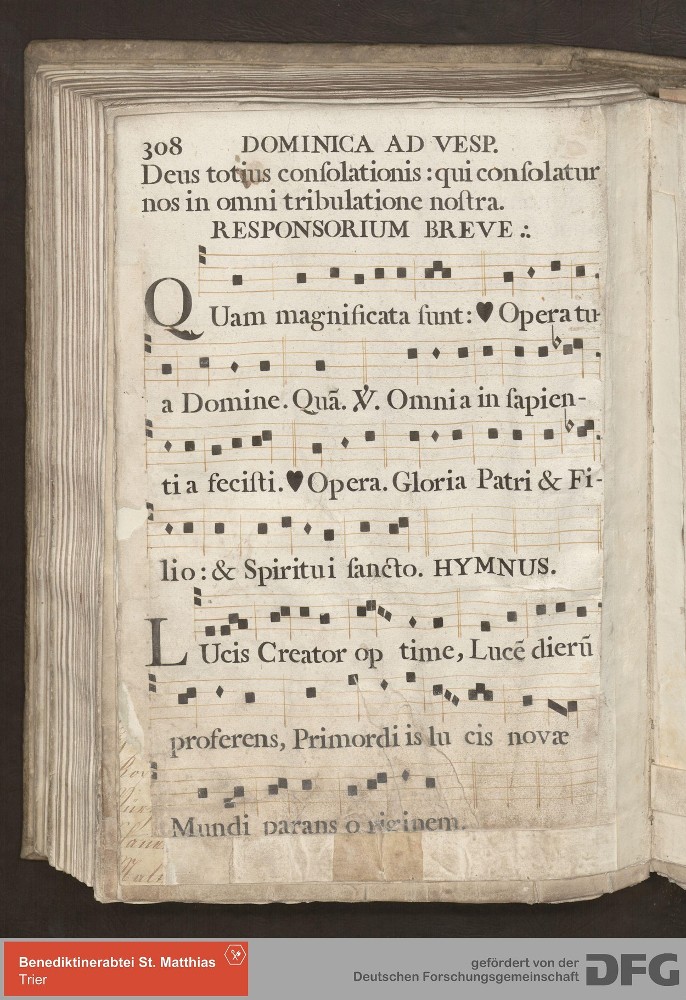 308 DOMINICA AD VESP.
Deus totius conſolationis : qui conſolatur
nos in omni tribulatione noſtra.
RESPONSORIUM BREVE .:
QUam magnificata ſunt: ♥ Opera tu-
a Domine. Quã. ℣. Omnia in ſapien-
tia feciſti. ♥ Opera. Gloria Patri & Fi-
lio : & Spiritui ſancto. HYMNUS.
LUcis Creator op time, Lucẽ dierũ
proferens, Primordiis lu cis novæ
Mundi parans originem.
Benediktinerabtei St. Matthias
Trier
gefördert von der
Deutschen Forschungsgemeinschaft
DFG